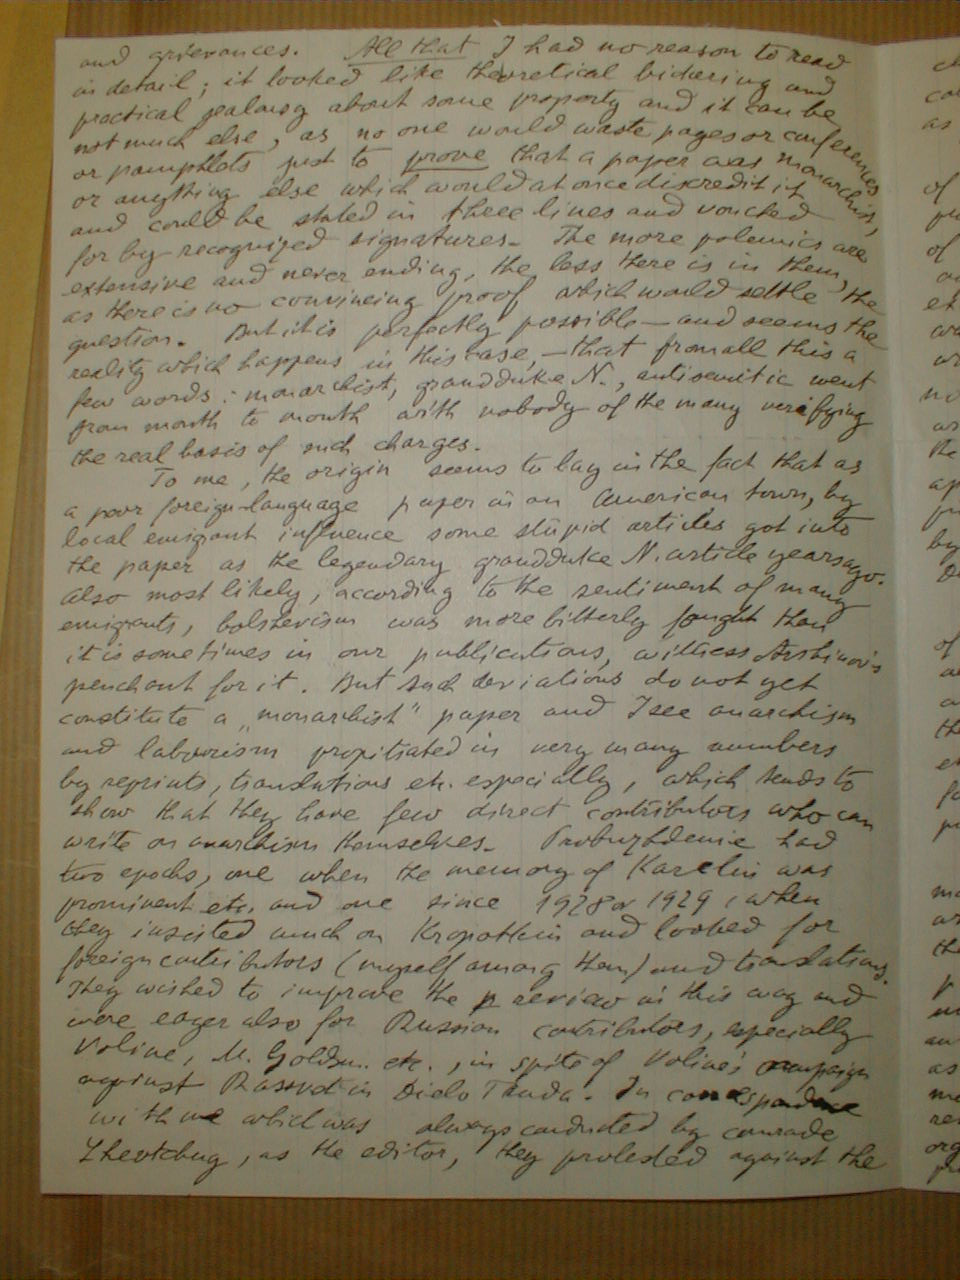 and grievances. All that I had no reason to read
in detail; it looked like theoretical bickering and
practical jealousy about some property and it can be
not much else, as no one would waste pages or conferences
or pamphlets just to prove that a paper was monarchist,
or anything else which would at once discredit it
and could be stated in three lines and vouched
for by recognized signatures. The more polemics are
extensive and never ending, the less there is in them,
as there is no convincing proof which would settle the
question. But it is perfectly possible — and seems the
reality which happens in this case, — that from all this a
few words: monarchist, grandduke N., antisemitic went
from mouth to mouth with nobody of the many verifying
the real basis of such charges.
To me, the origin seems to lay in the fact that as
a poor foreign-language paper in an American town, by
local emigrant influence some stupid articles got into
the paper as the legendary grandduke N. article years ago.
Also most likely, according to the sentiment of many
emigrants, bolshevism was more bitterly fought than
it is sometimes in our publications, witness Arshinov's
penchant for it. But such deviations do not yet
constitute a „monarchist" paper and I see anarchism
and labourism propitiated in very many numbers
by reprints, translations etc. especially, which tends to
show that they have few direct contributors who can
write on anarchism themselves. Probuzhdenie had
two epochs, one when the memory of Karelin was
prominent etc. and one since 1928 or 1929, when
they insisted much on Kropotkin and looked for
foreign contributors (myself among them) and translations.
They wished to improve the review in this way and
were eager also for Russian contributors, especially
Voline, M. Goldsm. etc., in spite of Voline's campaign
against Rassvet in Dielo Truda. In correspondence
with me which was always conducted by comrade
as the editor, they protested against the